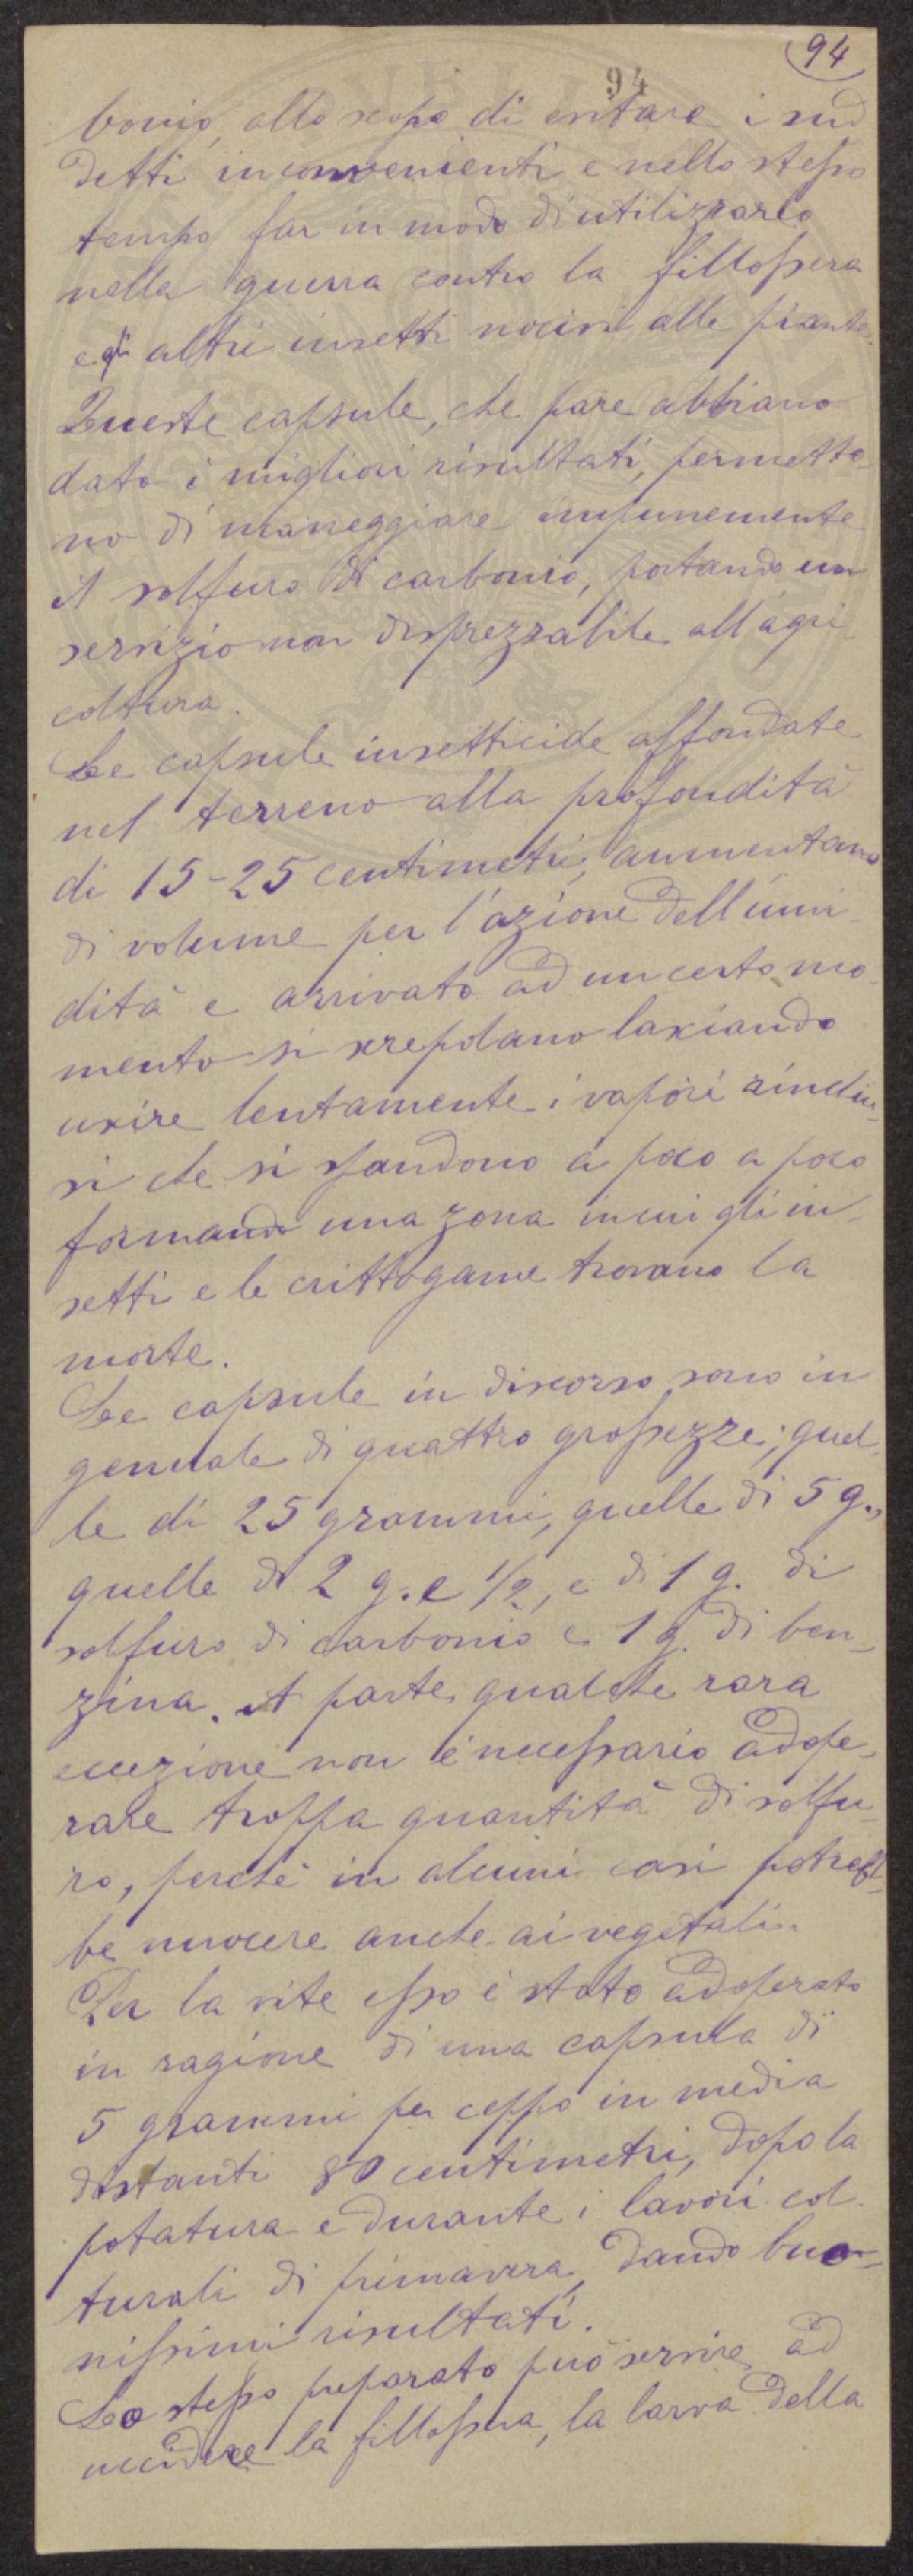 94
94
bonio, allo scopo di evitare i sud
detti inconvenienti e nello stesso
tempo far in modo di utilizzarlo
nella guerra contro la fillossera
e gli altri insetti nocivi alle piante.
Queste capsule, che pare abbiano
dato i migliori risultati, permetto-
no di maneggiare impunemente
il solfuro di carbonio, portando un
servizio non disprezzabile all'agri-
coltura.
Le capsule insetticide affondate
nel terreno alla profondità
di 15-25 centimetri, aumentano
di volume per l'azione dell'umi-
dità e arrivato ad un certo mo-
mento si screpolano lasciando
uscire lentamente i vapori rinchiu-
si che si spandono a poco a poco
formando una zona in cui gli in-
setti e le crittogame trovano la
morte.
Le capsule in discorso sono in
generale di quattro grossezze; quel-
le di 25 grammi, quelle di 5 g.,
quelle di 2 g. e 1/2, e di 1 g. di
solfuro di carbonio e 1 g. di ben-
zina. A parte qualche rara
eccezione non é necessario adope-
rare troppa quantità di solfu-
ro, perché in alcuni casi potreb-
be nuocere anche ai vegetali.
Per la vite esso è stato adoperato
in ragione di una capsula di
5 grammi per ceppo in media
distanti 80 centimetri, dopo la
potatura e durante i lavori col-
turali di primavera, dando buo-
nissimi risultati.
Lo stesso preparato può servire ad
uccidere la fillossera, la larva della